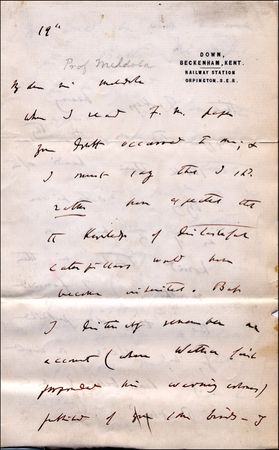 19th
Prof Meldola
DOWN,
BECKENHAM, KENT.
RAILWAY STATION
ORPINGTON. S.E.R.
My dear Mr Meldola
When I read F. M. paper
your doubt occurred to me; &
I must say that I shd.
rather have expected that
the knowledge of distasteful
caterpillars would have
become inherited. But
I distinctly remember an
account (when Wallace first
propounded his warning colours)
published of (the birds — I